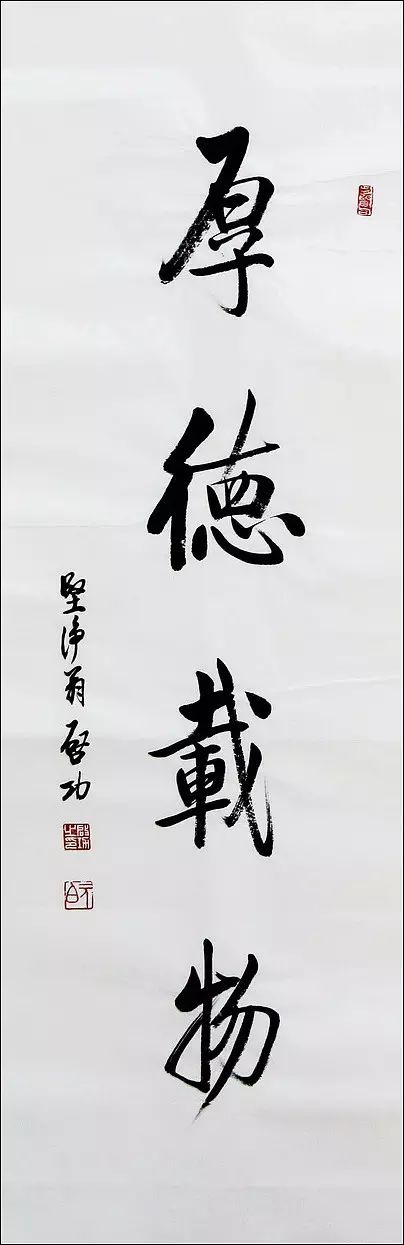 厚德載物
堅净翁 啓功